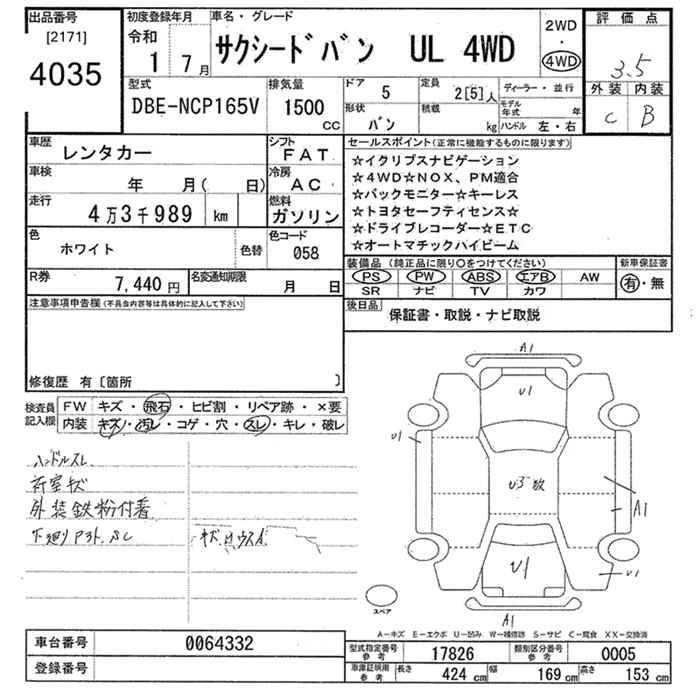 出品番号
[2171]
4035
初度登録年月
令和
1 7月
車名・グレード
サクシードバン UL 4WD
2WD
・
4WD
評価点
3.5
外装 内装
C B
型式
DBE-NCP165V
排気量
1500
CC
ドア 5
定員 2[5]人
ディーラー・並行
形状 バン
積載 kg
モデル年式 年
ハンドル 左・右
車歴 レンタカー
シフト FAT
車検 年 月( 日)
冷房 AC
走行 4万3千989 km
燃料 ガソリン
色 ホワイト 色替
色コード 058
R券 7,440円
名変通知期限 月 日
セールスポイント(正常に機能するものに限ります)
☆イクリプスナビゲーション
☆4WD☆NOX、PM適合
☆バックモニター☆キーレス
☆トヨタセーフティセンス☆
☆ドライブレコーダー☆ETC
☆オートマチックハイビーム
装備品(純正品に限り○をつけてください)
PS PW ABS エアB AW
SR ナビ TV カワ
新車保証書
有・無
後日品 保証書・取説・ナビ取説
注意事項申告欄(不具合内容等は具体的に記入して下さい)
修復歴 有〔箇所 〕
検査員記入欄
FW キズ・飛石・ヒビ割・リペア跡・×要
内装 キズ・汚レ・コゲ・穴・スレ・キレ・破レ
ハンドルスレ
荷室キズ
外装鉄粉付着
A1
U1
U1
U3数
A1
U1
U1
スペア
A1
A-キズ E-エクボ U-凹み W-補修跡 S-サビ C-腐食 XX-交換済
車台番号 0064332
登録番号
型式指定番号参考 17826
類別区分番号参考 0005
車庫証明用参考 長さ 424 cm 幅 169 cm 高さ 153 cm